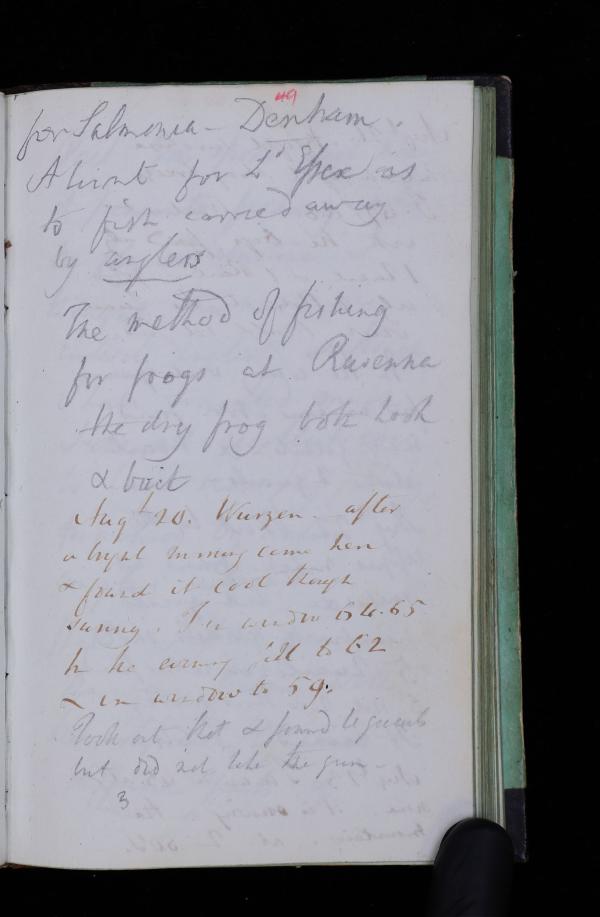 49
for Salmonia - Denham.
A hint for Ld Essex as
to fish carried away
by anglers
The method of fishing
for frogs at Ravenna
the dry frog both hook
& bait
Augt 20. Wurzen - after
a bright morning came here
& found it cool though
sunny. In window 64.65
In the evening fell to 62
in window to 59.
Took out Kot & found
but did not like the gun
3